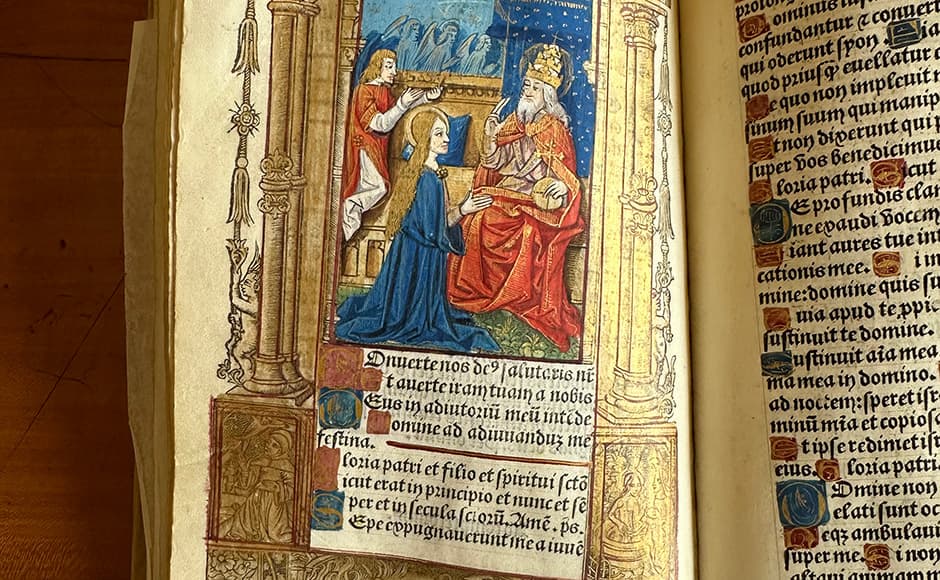 COnuerte nos de⁹ salutaris nr̄
Et auerte iram tuam a nobis
DEus in adiutoriū meū intēde
Domine ad adiuuanduz me
festina.
Gloria patri et filio et spiritui sctō
Sicut erat in principio et nunc et sē
per et in secula sclorū. Amē. ps.
SEpe expugnauerunt me a iuuē
Dominus
confundantur ⁊ conuert
qui oderunt syon
quod priusq̄ euellatur
De quo non impleuit
sinum suum qui manip
Et non dixerunt qui p
super vos benedicimu
Gloria patri. Sicut
DE profundis cla
ne exaudi vocem
Fiant aures tue in
cationis mee. Si in
mine: domine quis su
Quia apud te ꝓpi
sustinui te domine.
Sustinuit aīa mea
ma mea in domino.
ad noctem: speret isr
minū mīa et copios
Et ipse redimet isr
eius. Gloria patri
DOmine non
elati sunt oc
Neqꝫ ambulaui
super me. Si non